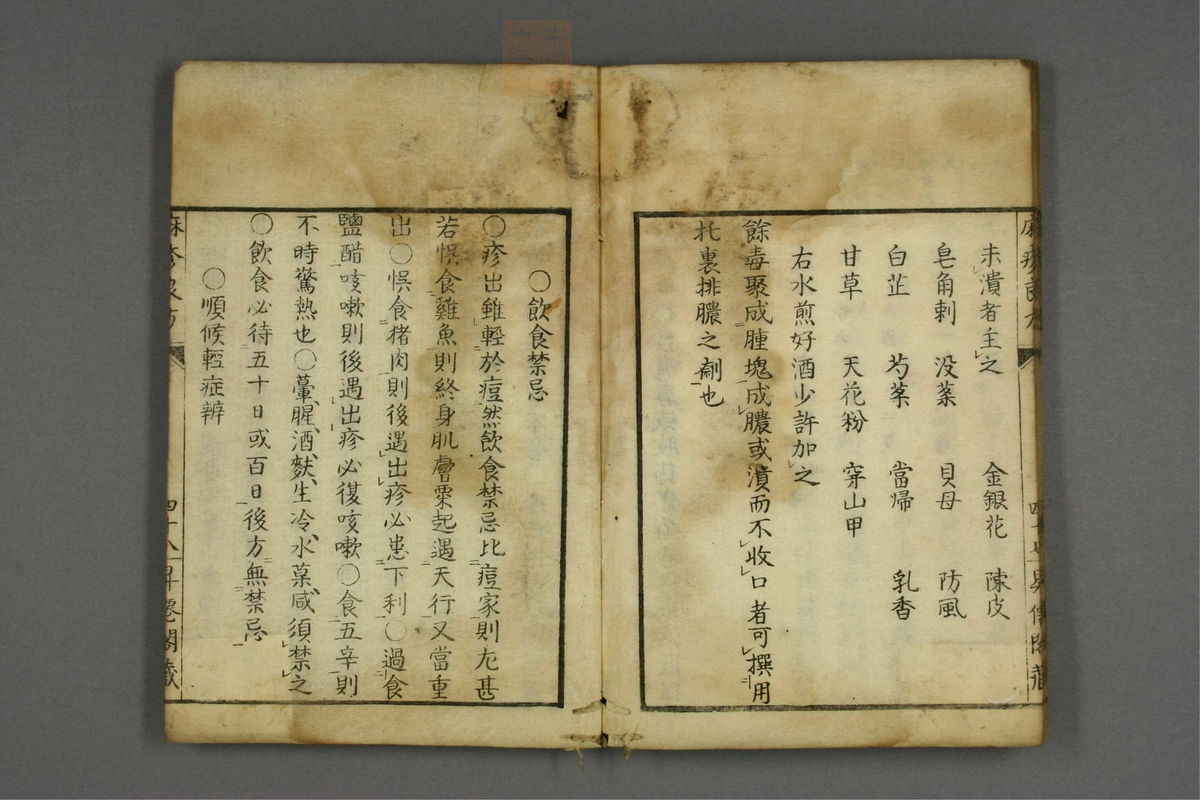 未潰者主之　金銀花　陳皮
皂角刺　没薬　貝母　防風
白芷　芍薬　當帰　乳香
甘草　天花粉　穿山甲
右水煎好酒少許加之
餘毒聚成腫塊成膿或潰而不收口者可撰用
托裏排膿之劑也
○飲食禁忌
○疹出雖輕於痘然飲食禁忌比痘家則尤甚
若悮食雞魚則終身肌膚粟起遇天行又當重
出○悮食猪肉則後遇出疹必患下利○過食
鹽醋咳嗽則後遇出疹必復咳嗽○食五辛則
不時驚熱也○葷腥酒麩生冷水菓咸須禁之
○飲食必待五十日或百日後方無禁忌
○順候輕症辨
麻疹良方
四十八